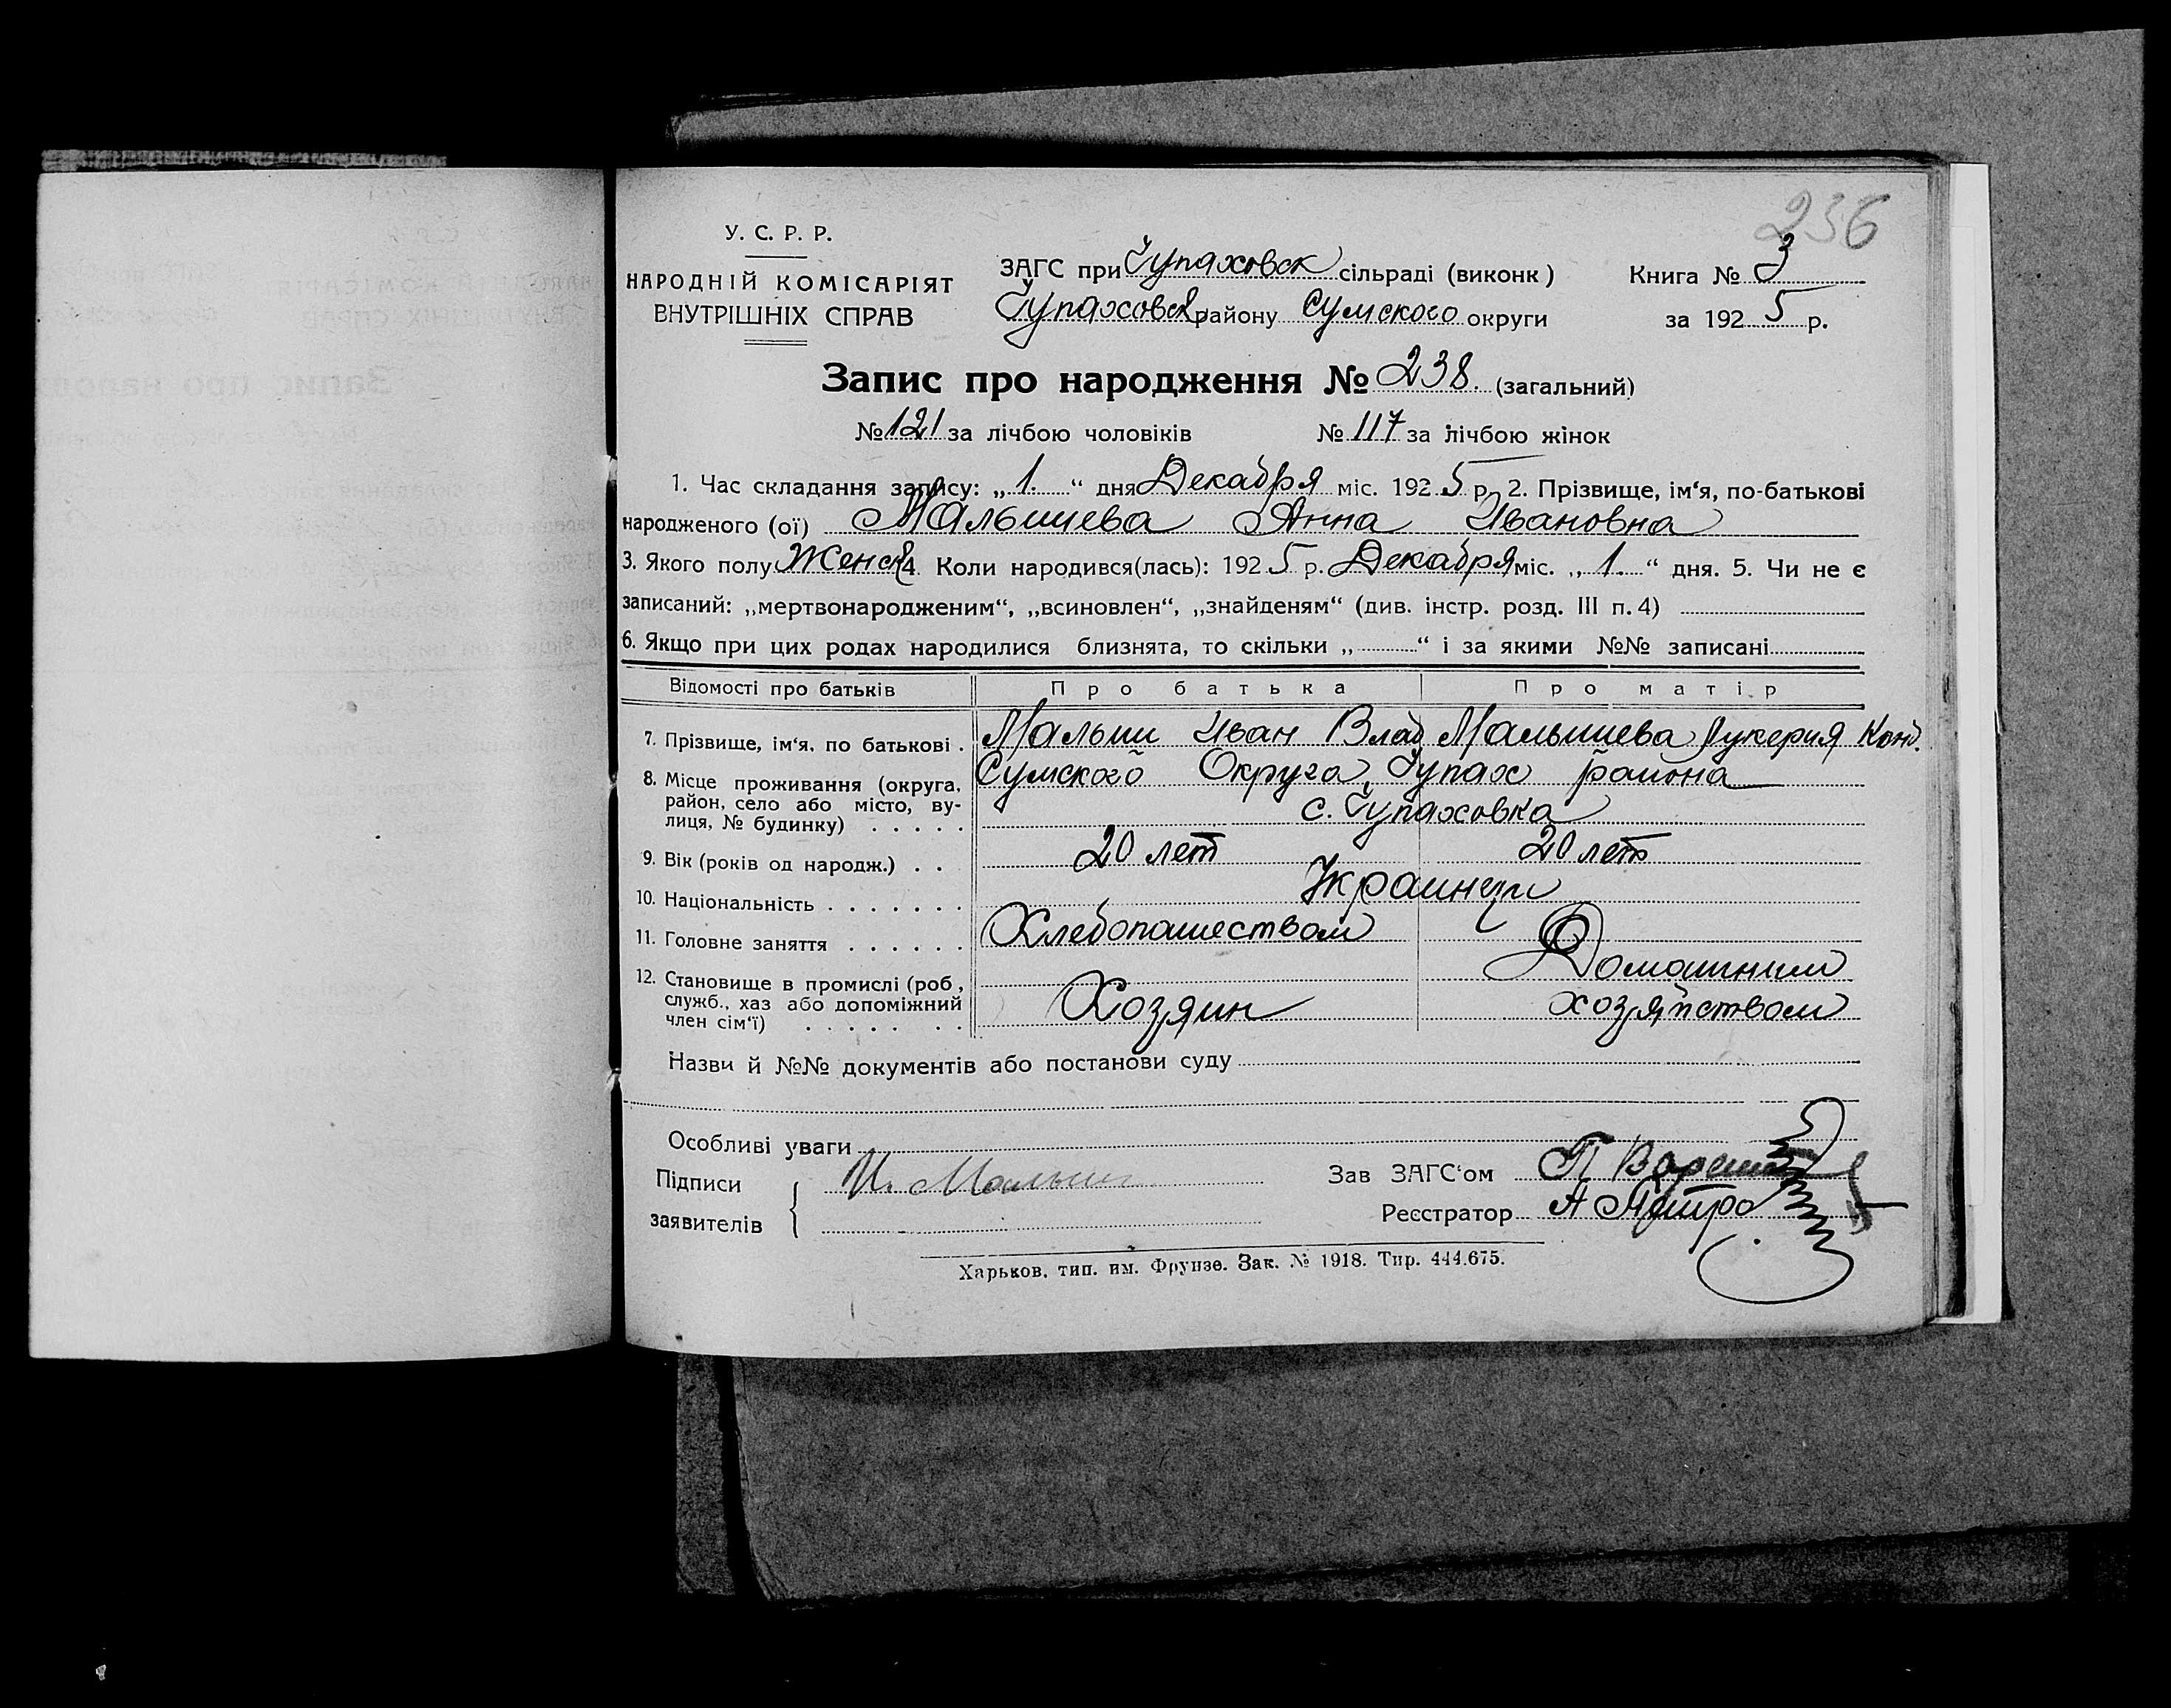 236
У. С. Р. Р.
НАРОДНІЙ КОМІСАРІЯТ
ВНУТРІШНІХ СПРАВ
ЗАГС при Чупаховск сільраді (виконк)
Чупаховск району Сумского округи
Книга № 3
за 1925 р.
Запис про народження № 238. (загальний)
№ 121 за лічбою чоловіків № 117 за лічбою жінок
1. Час складання запису: „1.“ дня Декабря міс. 1925 р. 2. Прізвище, ім‘я, по-батькові
народженого (ої) Малышева Анна Ивановна
3. Якого полу Женск 4. Коли народився(лась): 1925 р. Декабря міс. „1.“ дня. 5. Чи не є
записаний: „мертвонародженим“, „всиновлен“, „знайденям“ (див. інстр. розд. III п. 4)
6. Якщо при цих родах народилися близнята, то скільки „ “ і за якими №№ записані
Відомості про батьків Про батька Про матір
7. Прізвище, ім‘я, по батькові . Малыш Иван Влад Малышева Лукерия Конд.
8. Місце проживання (округа, район, село або місто, вулиця, № будинку) . . . . . Сумского Округа Чупах района
с. Чупаховка
9. Вік (років од народж.) . . 20 лет 20 лет
10. Національність . . . . . . . Украинцы
11. Головне заняття . . . . . . Хлебопашеством Домашним
хозяйством
12. Становище в промислі (роб, служб., хаз або допоміжний член сім‘ї) . . . . . . . . Хозяин
Назви й №№ документів або постанови суду
Особливі уваги
Підписи
заявителів
И. Малыш
Зав ЗАГС‘ом
Реєстратор А
Харьков, тип. им. Фрунзе. Зак. № 1918. Тир. 444.675.